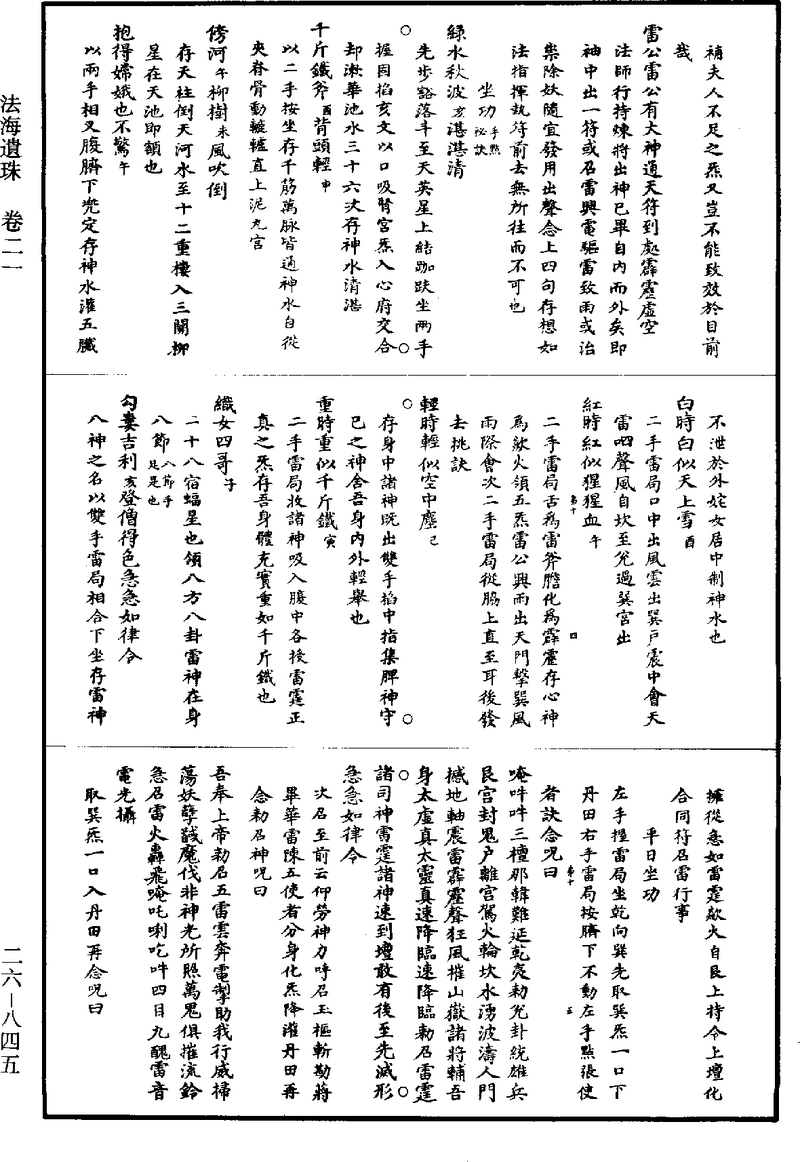 法海遺珠 卷二一
補夫人不足之炁又豈不能致效於目前
哉
雷公雷公有大神通天符到處霹靂虛空
法師行持煉將出神已畢自內而外矣即
袖中出一符或召雷興電驅雷致雨或治
祟除妖隨宜發用出聲念上四句存想如
法指揮執符前去無所往而不可也
坐功手點秘訣
綠水秋波亥湛湛清
先步豁落斗至天英星上結跏趺坐兩手
握固掐亥文以口吸腎宮炁入心府交合
却漱華池水三十六次存神水清湛
千斤鐵斧酉背頭輕申
以二手按坐存千筋萬脉皆通神水自從
夾脊骨動轆轤直上泥丸宮
傍河午柳樹未風吹倒
存天柱倒天河水至十二重樓入三關柳
星在天池即額也
抱得嫦娥也不驚午
以兩手相叉腹臍下兠定存神水灌五臟
不泄於外姹女居中制神水也
白時白似天上雪酉
二手雷局口中出風雲出巽戶震中會天
雷四聲風自坎至兊過巽宮出
紅時紅似猩猩血午
二手雷局舌爲雷斧膽化爲霹靂存心神
爲歘火領五炁雷公興雨出天門擊巽風
雨際會次二手雷局從脇上直至耳後發
去挑訣
輕時輕似空中塵巳
存身中諸神既出雙手掐中指集脾神守
已之神舍吾身內外輕舉也
重時重似千斤鐵寅
二手雷局收諸神吸入腹中各授雷霆正
真之炁存吾身體充實重如千斤鐵也
織女四哥子
二十八宿蝠星也領八方八卦雷神在身
八節八節手足是也
勾婁吉利亥登僧得色急急如律令
八神之名以雙手雷局相合下坐存雷神
擁從急如雷霆歘火自艮上持令上壇化
合同符召雷行事
平日坐功
左手握雷局坐乾向巽先取巽炁一口下
丹田右手雷局按臍下不動左手點張使
者訣念呪曰
唵吽吽三檀那韓難延乾夷勅兊卦統雄兵
艮宮封鬼户離宮駕火輪坎水湧波濤人門
撼地軸震雷霹靂聲狂風摧山嶽諸將輔吾
身太虛真太靈真速降臨速降臨勅召雷霆
諸司神雷霆諸神速到壇敢有後至先滅形
急急如律令
次召至前云仰勞神力呼召玉樞斬勘蔣
畢華雷陳五使者分身化炁降灌丹田再
念勅召神呪曰
吾奉上帝勅召五雷雲奔電掣助我行威掃
蕩妖孽馘魔伐非神光所照萬鬼俱摧流鈴
急召雷火轟飛唵吒唎吃吽四目九醜雷音
電光攝
取巽炁一口入丹田再念呪曰
二六—八四五